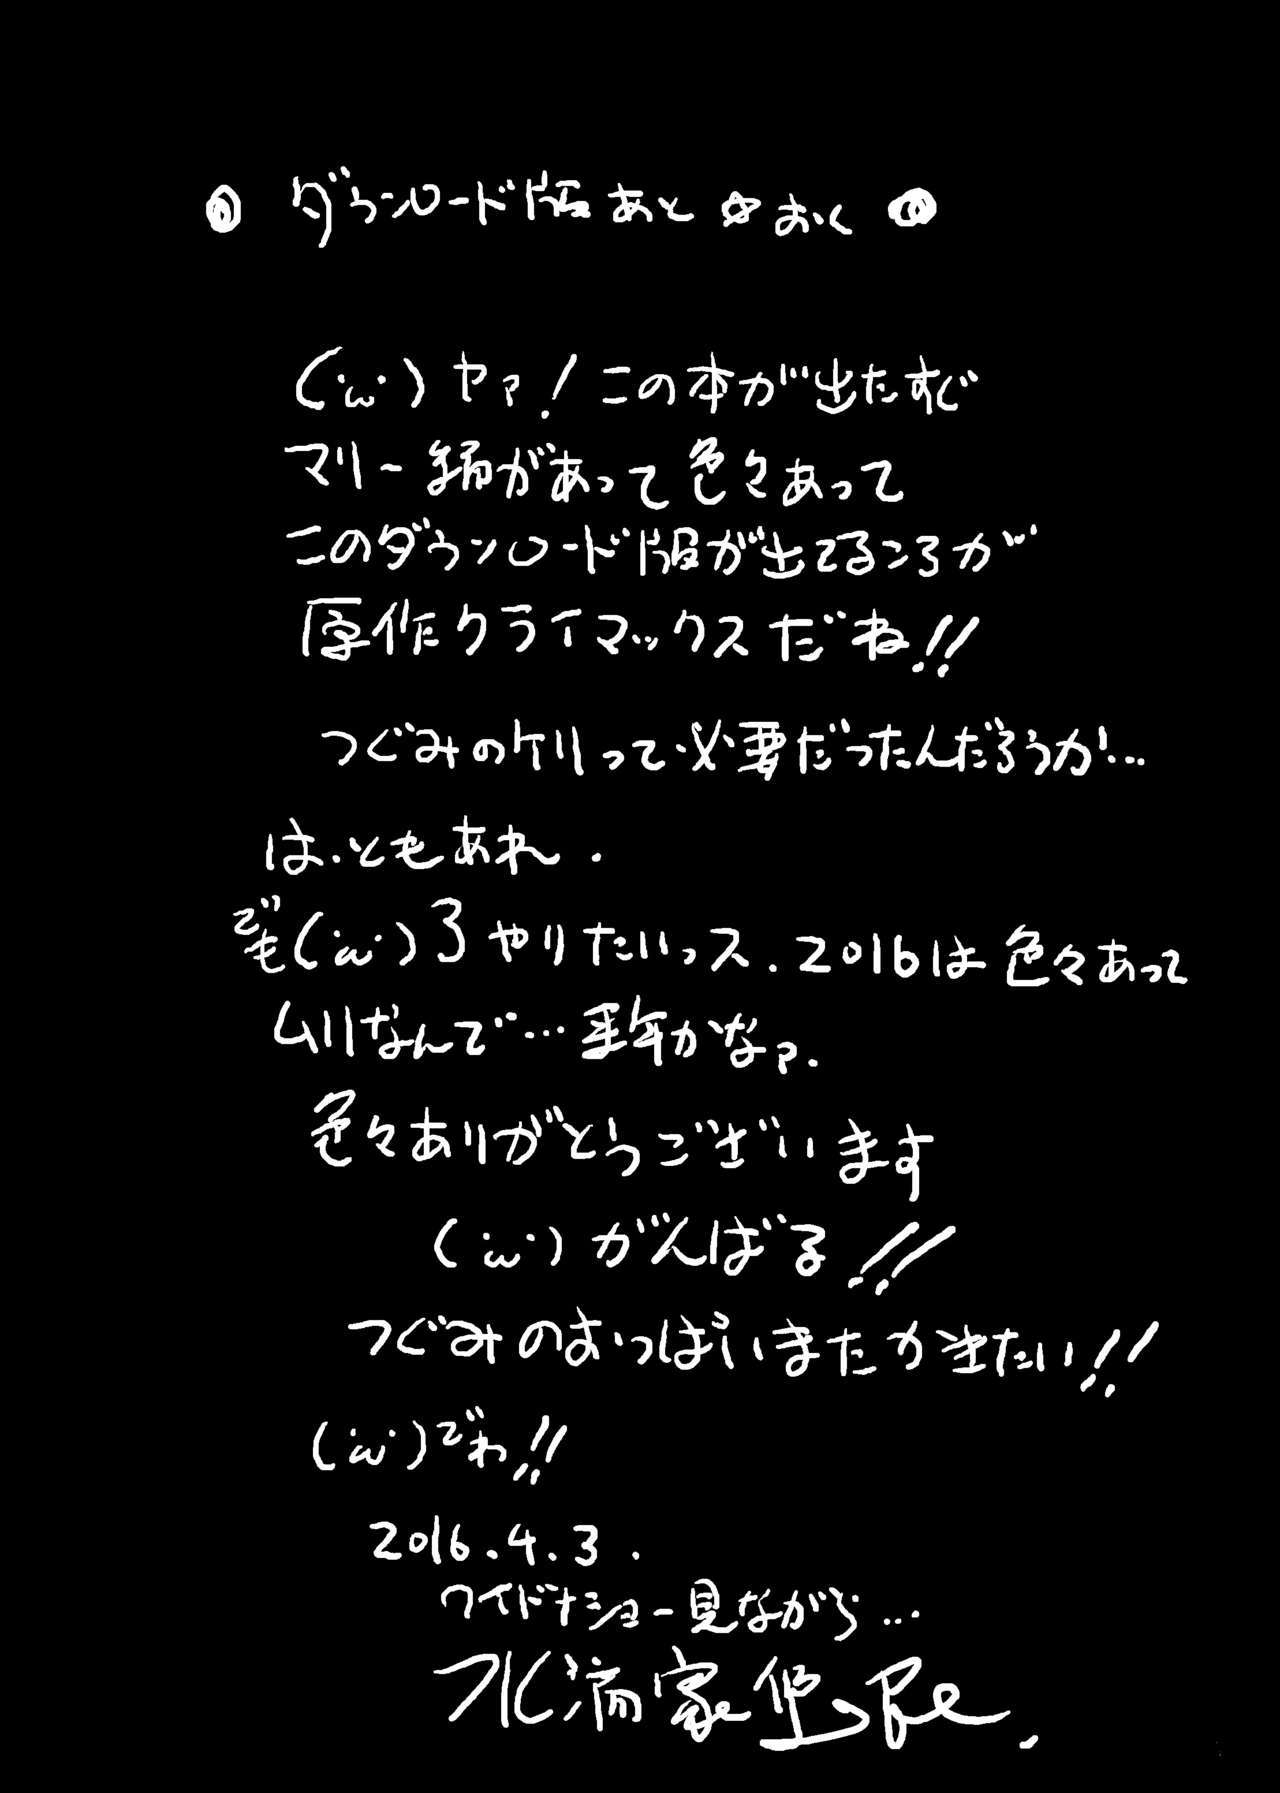 ダウンロード版あと☆おく
(・ω・)ヤァ!この本が出たすぐ
マリー編があって色々あって
このダウンロード版が出てるころが
原作クライマックスだね!!
つぐみのケリって必要だったんだろうか…
は、ともあれ.
でも(・ω・)3やりたいっス.2016は色々あって
ムリなんで…来年かなァ.
色々ありがとうございます
(・ω・)がんばる!!
つぐみのおっぱいまたかきたい!!
(・ω・)でわ!!
2016.4.3.
ワイドナショー見ながら…